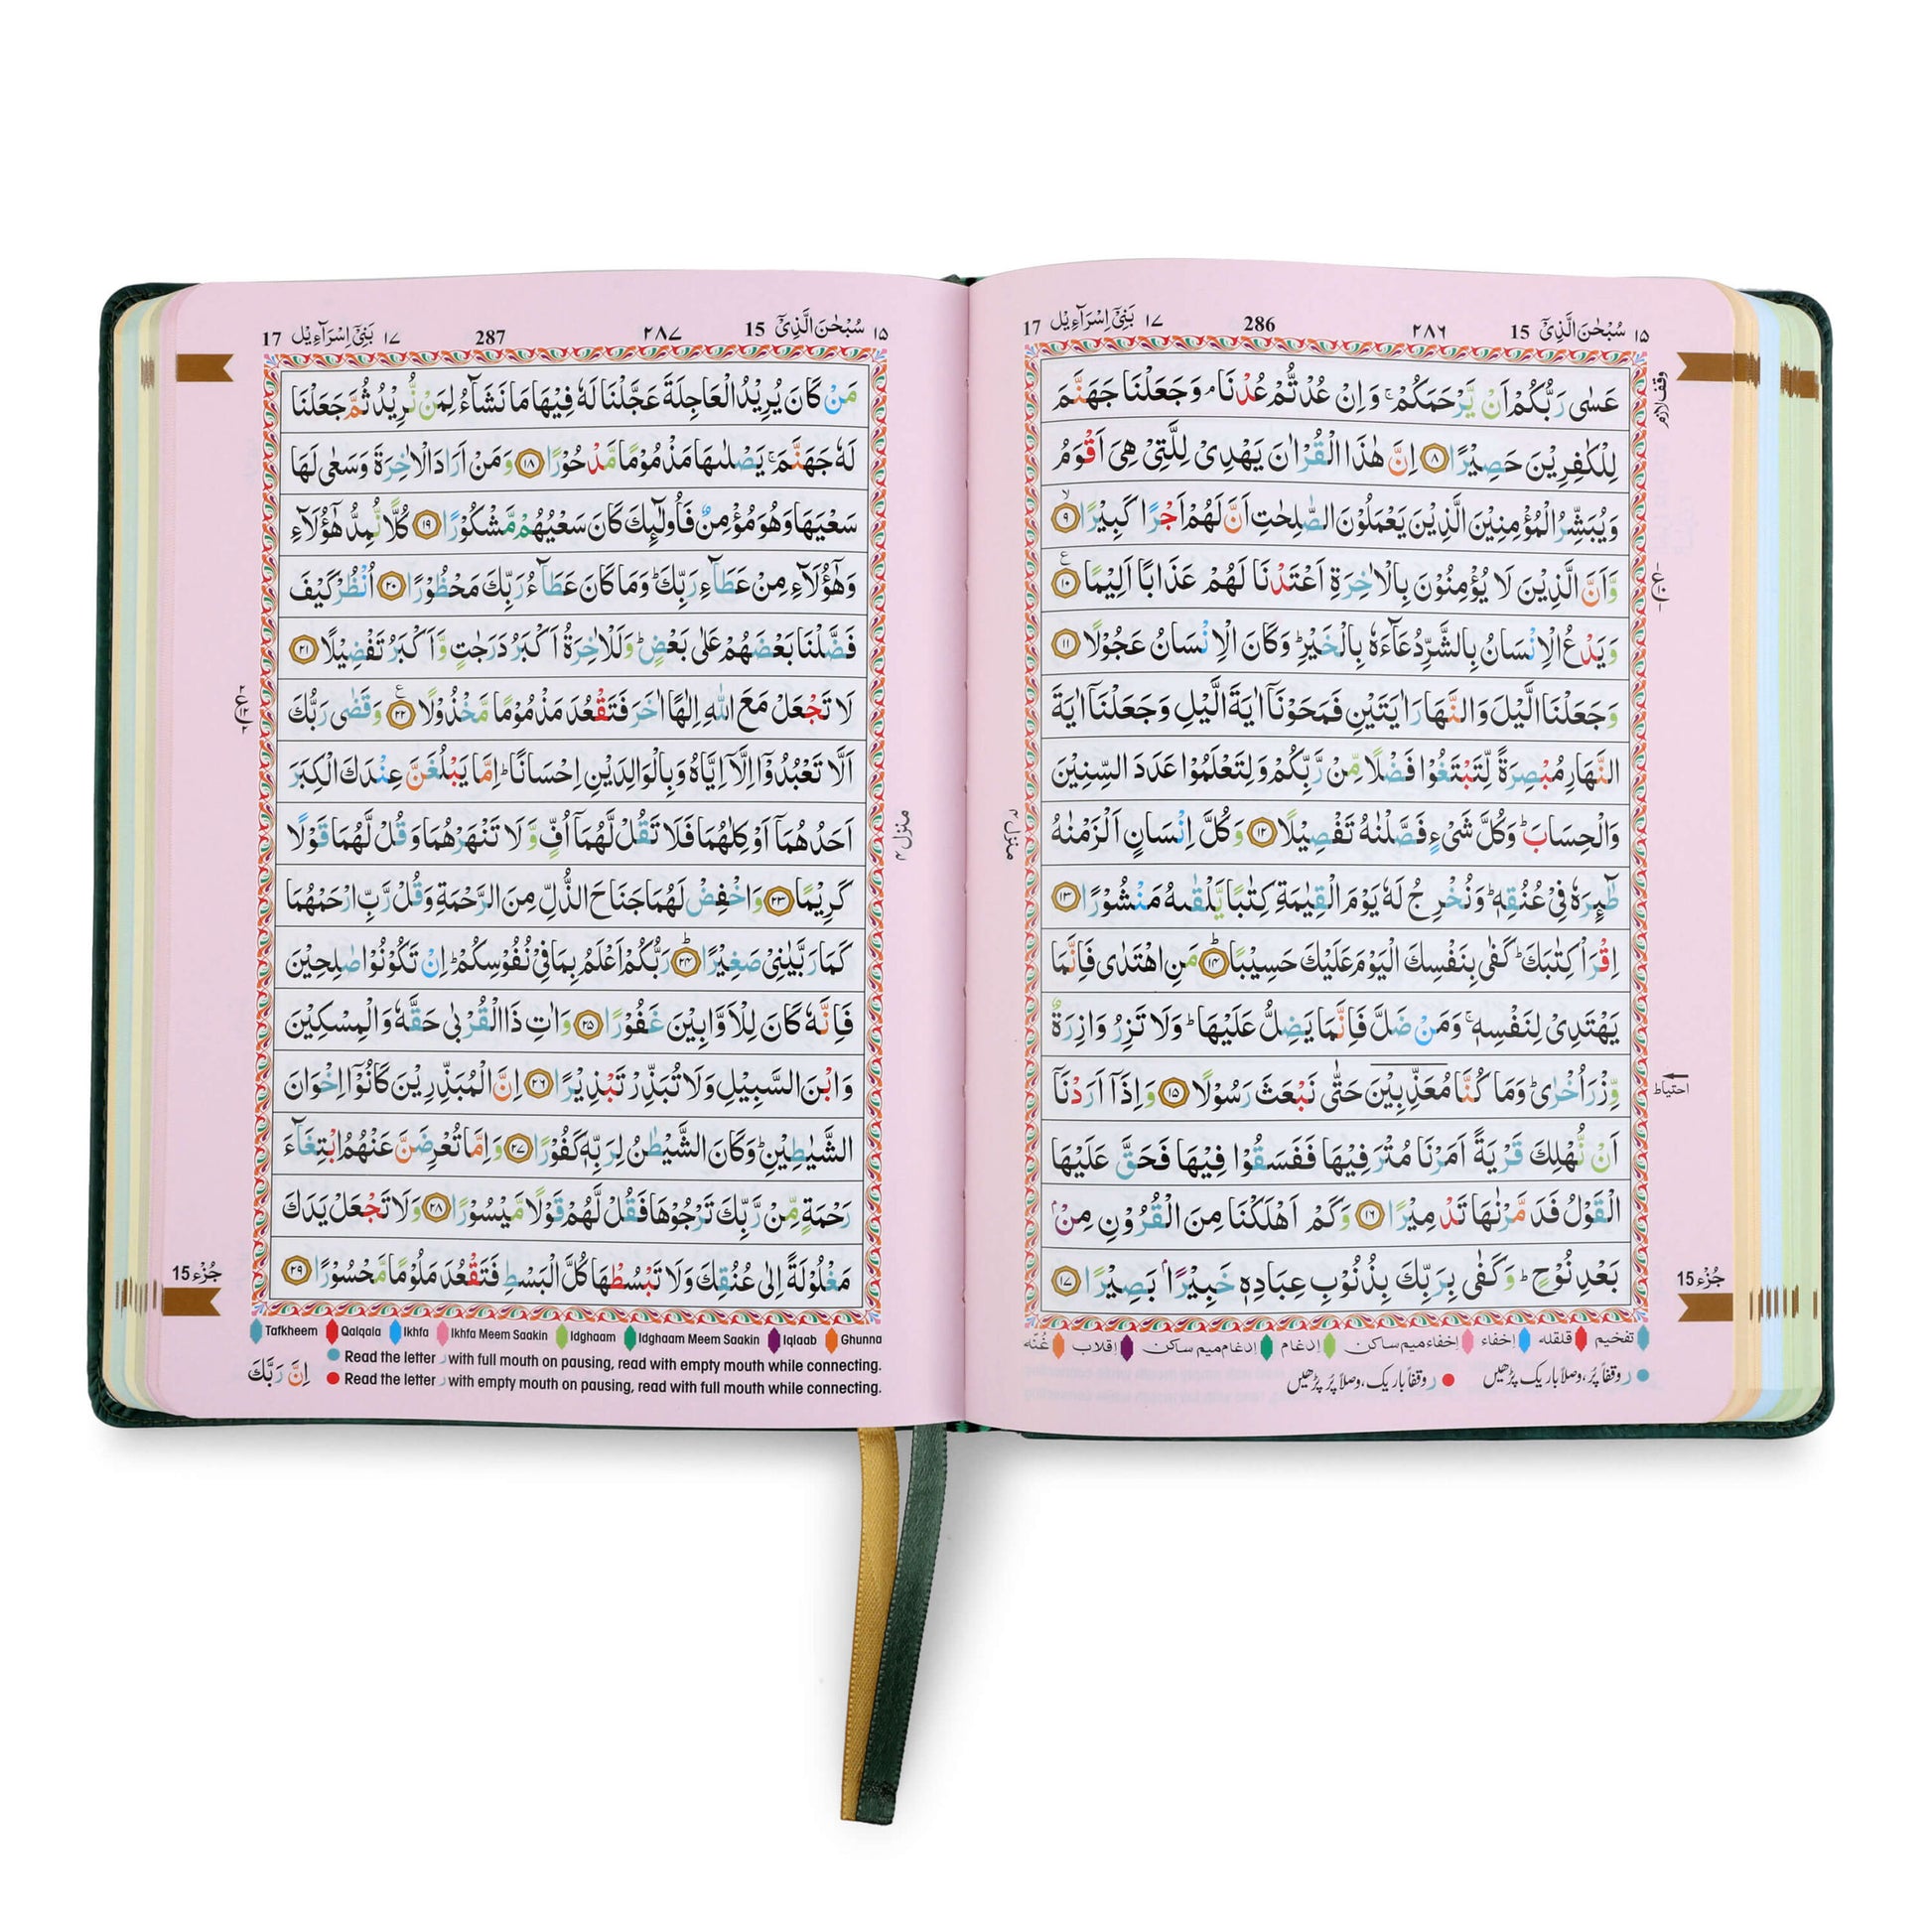 ١٥ سُبْحٰنَ الَّذِىْٓ 15 ٢٨٦ 286 ١٧ بَنِىْٓ اِسْرَآءِيْل 17
وقف لازم
عَسٰى رَبُّكُمْ اَنْ يَّرْحَمَكُمْ ۚ وَاِنْ عُدْتُّمْ عُدْنَا ۘ وَجَعَلْنَا جَهَنَّمَ
لِلْكٰفِرِيْنَ حَصِيْرًا ﴿٨﴾ اِنَّ هٰذَا الْقُرْاٰنَ يَهْدِىْ لِلَّتِىْ هِىَ اَقْوَمُ
وَيُبَشِّرُ الْمُؤْمِنِيْنَ الَّذِيْنَ يَعْمَلُوْنَ الصّٰلِحٰتِ اَنَّ لَهُمْ اَجْرًا كَبِيْرًا ﴿٩﴾
وَّاَنَّ الَّذِيْنَ لَا يُؤْمِنُوْنَ بِالْاٰخِرَةِ اَعْتَدْنَا لَهُمْ عَذَابًا اَلِيْمًا ﴿١٠﴾
وَيَدْعُ الْاِنْسَانُ بِالشَّرِّ دُعَآءَهٗ بِالْخَيْرِ ؕ وَكَانَ الْاِنْسَانُ عَجُوْلًا ﴿١١﴾
وَجَعَلْنَا الَّيْلَ وَالنَّهَارَ اٰيَتَيْنِ فَمَحَوْنَآ اٰيَةَ الَّيْلِ وَجَعَلْنَآ اٰيَةَ
النَّهَارِ مُبْصِرَةً لِّتَبْتَغُوْا فَضْلًا مِّنْ رَّبِّكُمْ وَلِتَعْلَمُوْا عَدَدَ السِّنِيْنَ
وَالْحِسَابَ ؕ وَكُلَّ شَىْءٍ فَصَّلْنٰهُ تَفْصِيْلًا ﴿١٢﴾ وَكُلَّ اِنْسَانٍ اَلْزَمْنٰهُ
طٰٓئِرَهٗ فِىْ عُنُقِهٖ ؕ وَنُخْرِجُ لَهٗ يَوْمَ الْقِيٰمَةِ كِتٰبًا يَّلْقٰىهُ مَنْشُوْرًا ﴿١٣﴾
اِقْرَاْ كِتٰبَكَ ؕ كَفٰى بِنَفْسِكَ الْيَوْمَ عَلَيْكَ حَسِيْبًا ﴿١٤﴾ مَنِ اهْتَدٰى فَاِنَّمَا
يَهْتَدِىْ لِنَفْسِهٖ ۚ وَمَنْ ضَلَّ فَاِنَّمَا يَضِلُّ عَلَيْهَا ؕ وَلَا تَزِرُ وَازِرَةٌ
وِّزْرَ اُخْرٰى ؕ وَمَا كُنَّا مُعَذِّبِيْنَ حَتّٰى نَبْعَثَ رَسُوْلًا ﴿١٥﴾ وَاِذَآ اَرَدْنَآ
احتیاط
اَنْ نُّهْلِكَ قَرْيَةً اَمَرْنَا مُتْرَفِيْهَا فَفَسَقُوْا فِيْهَا فَحَقَّ عَلَيْهَا
الْقَوْلُ فَدَمَّرْنٰهَا تَدْمِيْرًا ﴿١٦﴾ وَكَمْ اَهْلَكْنَا مِنَ الْقُرُوْنِ مِنْۢ
بَعْدِ نُوْحٍ ؕ وَكَفٰى بِرَبِّكَ بِذُنُوْبِ عِبَادِهٖ خَبِيْرًاۢ بَصِيْرًا ﴿١٧﴾
جُزْء 15
منزل ٤
تفخيم قلقله إخفاء إخفاءميم ساكن إدغام إدغام ميم ساكن إقلاب غُنّه
ر وقفاً پُر، وصلاً باریک پڑھیں ر وقفاً باریک، وصلاً پُر پڑھیں
١٥ سُبْحٰنَ الَّذِىْٓ 15 ٢٨٧ 287 ١٧ بَنِىْٓ اِسْرَآءِيْل 17
مَنْ كَانَ يُرِيْدُ الْعَاجِلَةَ عَجَّلْنَا لَهٗ فِيْهَا مَا نَشَآءُ لِمَنْ نُّرِيْدُ ثُمَّ جَعَلْنَا
لَهٗ جَهَنَّمَ ۚ يَصْلٰىهَا مَذْمُوْمًا مَّدْحُوْرًا ﴿١٨﴾ وَمَنْ اَرَادَ الْاٰخِرَةَ وَسَعٰى لَهَا
سَعْيَهَا وَهُوَ مُؤْمِنٌ فَاُولٰٓئِكَ كَانَ سَعْيُهُمْ مَّشْكُوْرًا ﴿١٩﴾ كُلًّا نُّمِدُّ هٰٓؤُلَآءِ
وَهٰٓؤُلَآءِ مِنْ عَطَآءِ رَبِّكَ ؕ وَمَا كَانَ عَطَآءُ رَبِّكَ مَحْظُوْرًا ﴿٢٠﴾ اُنْظُرْ كَيْفَ
فَضَّلْنَا بَعْضَهُمْ عَلٰى بَعْضٍ ؕ وَلَلْاٰخِرَةُ اَكْبَرُ دَرَجٰتٍ وَّاَكْبَرُ تَفْضِيْلًا ﴿٢١﴾
لَا تَجْعَلْ مَعَ اللّٰهِ اِلٰهًا اٰخَرَ فَتَقْعُدَ مَذْمُوْمًا مَّخْذُوْلًا ﴿٢٢﴾ وَقَضٰى رَبُّكَ
اَلَّا تَعْبُدُوْٓا اِلَّآ اِيَّاهُ وَبِالْوَالِدَيْنِ اِحْسَانًا ؕ اِمَّا يَبْلُغَنَّ عِنْدَكَ الْكِبَرَ
اَحَدُهُمَآ اَوْ كِلٰهُمَا فَلَا تَقُلْ لَّهُمَآ اُفٍّ وَّلَا تَنْهَرْهُمَا وَقُلْ لَّهُمَا قَوْلًا
كَرِيْمًا ﴿٢٣﴾ وَاخْفِضْ لَهُمَا جَنَاحَ الذُّلِّ مِنَ الرَّحْمَةِ وَقُلْ رَّبِّ ارْحَمْهُمَا
كَمَا رَبَّيٰنِىْ صَغِيْرًا ﴿٢٤﴾ رَبُّكُمْ اَعْلَمُ بِمَا فِىْ نُفُوْسِكُمْ ؕ اِنْ تَكُوْنُوْا صٰلِحِيْنَ
فَاِنَّهٗ كَانَ لِلْاَوَّابِيْنَ غَفُوْرًا ﴿٢٥﴾ وَاٰتِ ذَا الْقُرْبٰى حَقَّهٗ وَالْمِسْكِيْنَ
وَابْنَ السَّبِيْلِ وَلَا تُبَذِّرْ تَبْذِيْرًا ﴿٢٦﴾ اِنَّ الْمُبَذِّرِيْنَ كَانُوْٓا اِخْوَانَ
الشَّيٰطِيْنِ ؕ وَكَانَ الشَّيْطٰنُ لِرَبِّهٖ كَفُوْرًا ﴿٢٧﴾ وَاِمَّا تُعْرِضَنَّ عَنْهُمُ ابْتِغَآءَ
رَحْمَةٍ مِّنْ رَّبِّكَ تَرْجُوْهَا فَقُلْ لَّهُمْ قَوْلًا مَّيْسُوْرًا ﴿٢٨﴾ وَلَا تَجْعَلْ يَدَكَ
مَغْلُوْلَةً اِلٰى عُنُقِكَ وَلَا تَبْسُطْهَا كُلَّ الْبَسْطِ فَتَقْعُدَ مَلُوْمًا مَّحْسُوْرًا ﴿٢٩﴾
منزل ٤
جُزْء 15
Tafkheem Qalqala Ikhfa Ikhfa Meem Saakin Idghaam Idghaam Meem Saakin Iqlaab Ghunna
Read the letter ر with full mouth on pausing, read with empty mouth while connecting.
Read the letter ر with empty mouth on pausing, read with full mouth while connecting.
اِنَّ رَبَّكَ